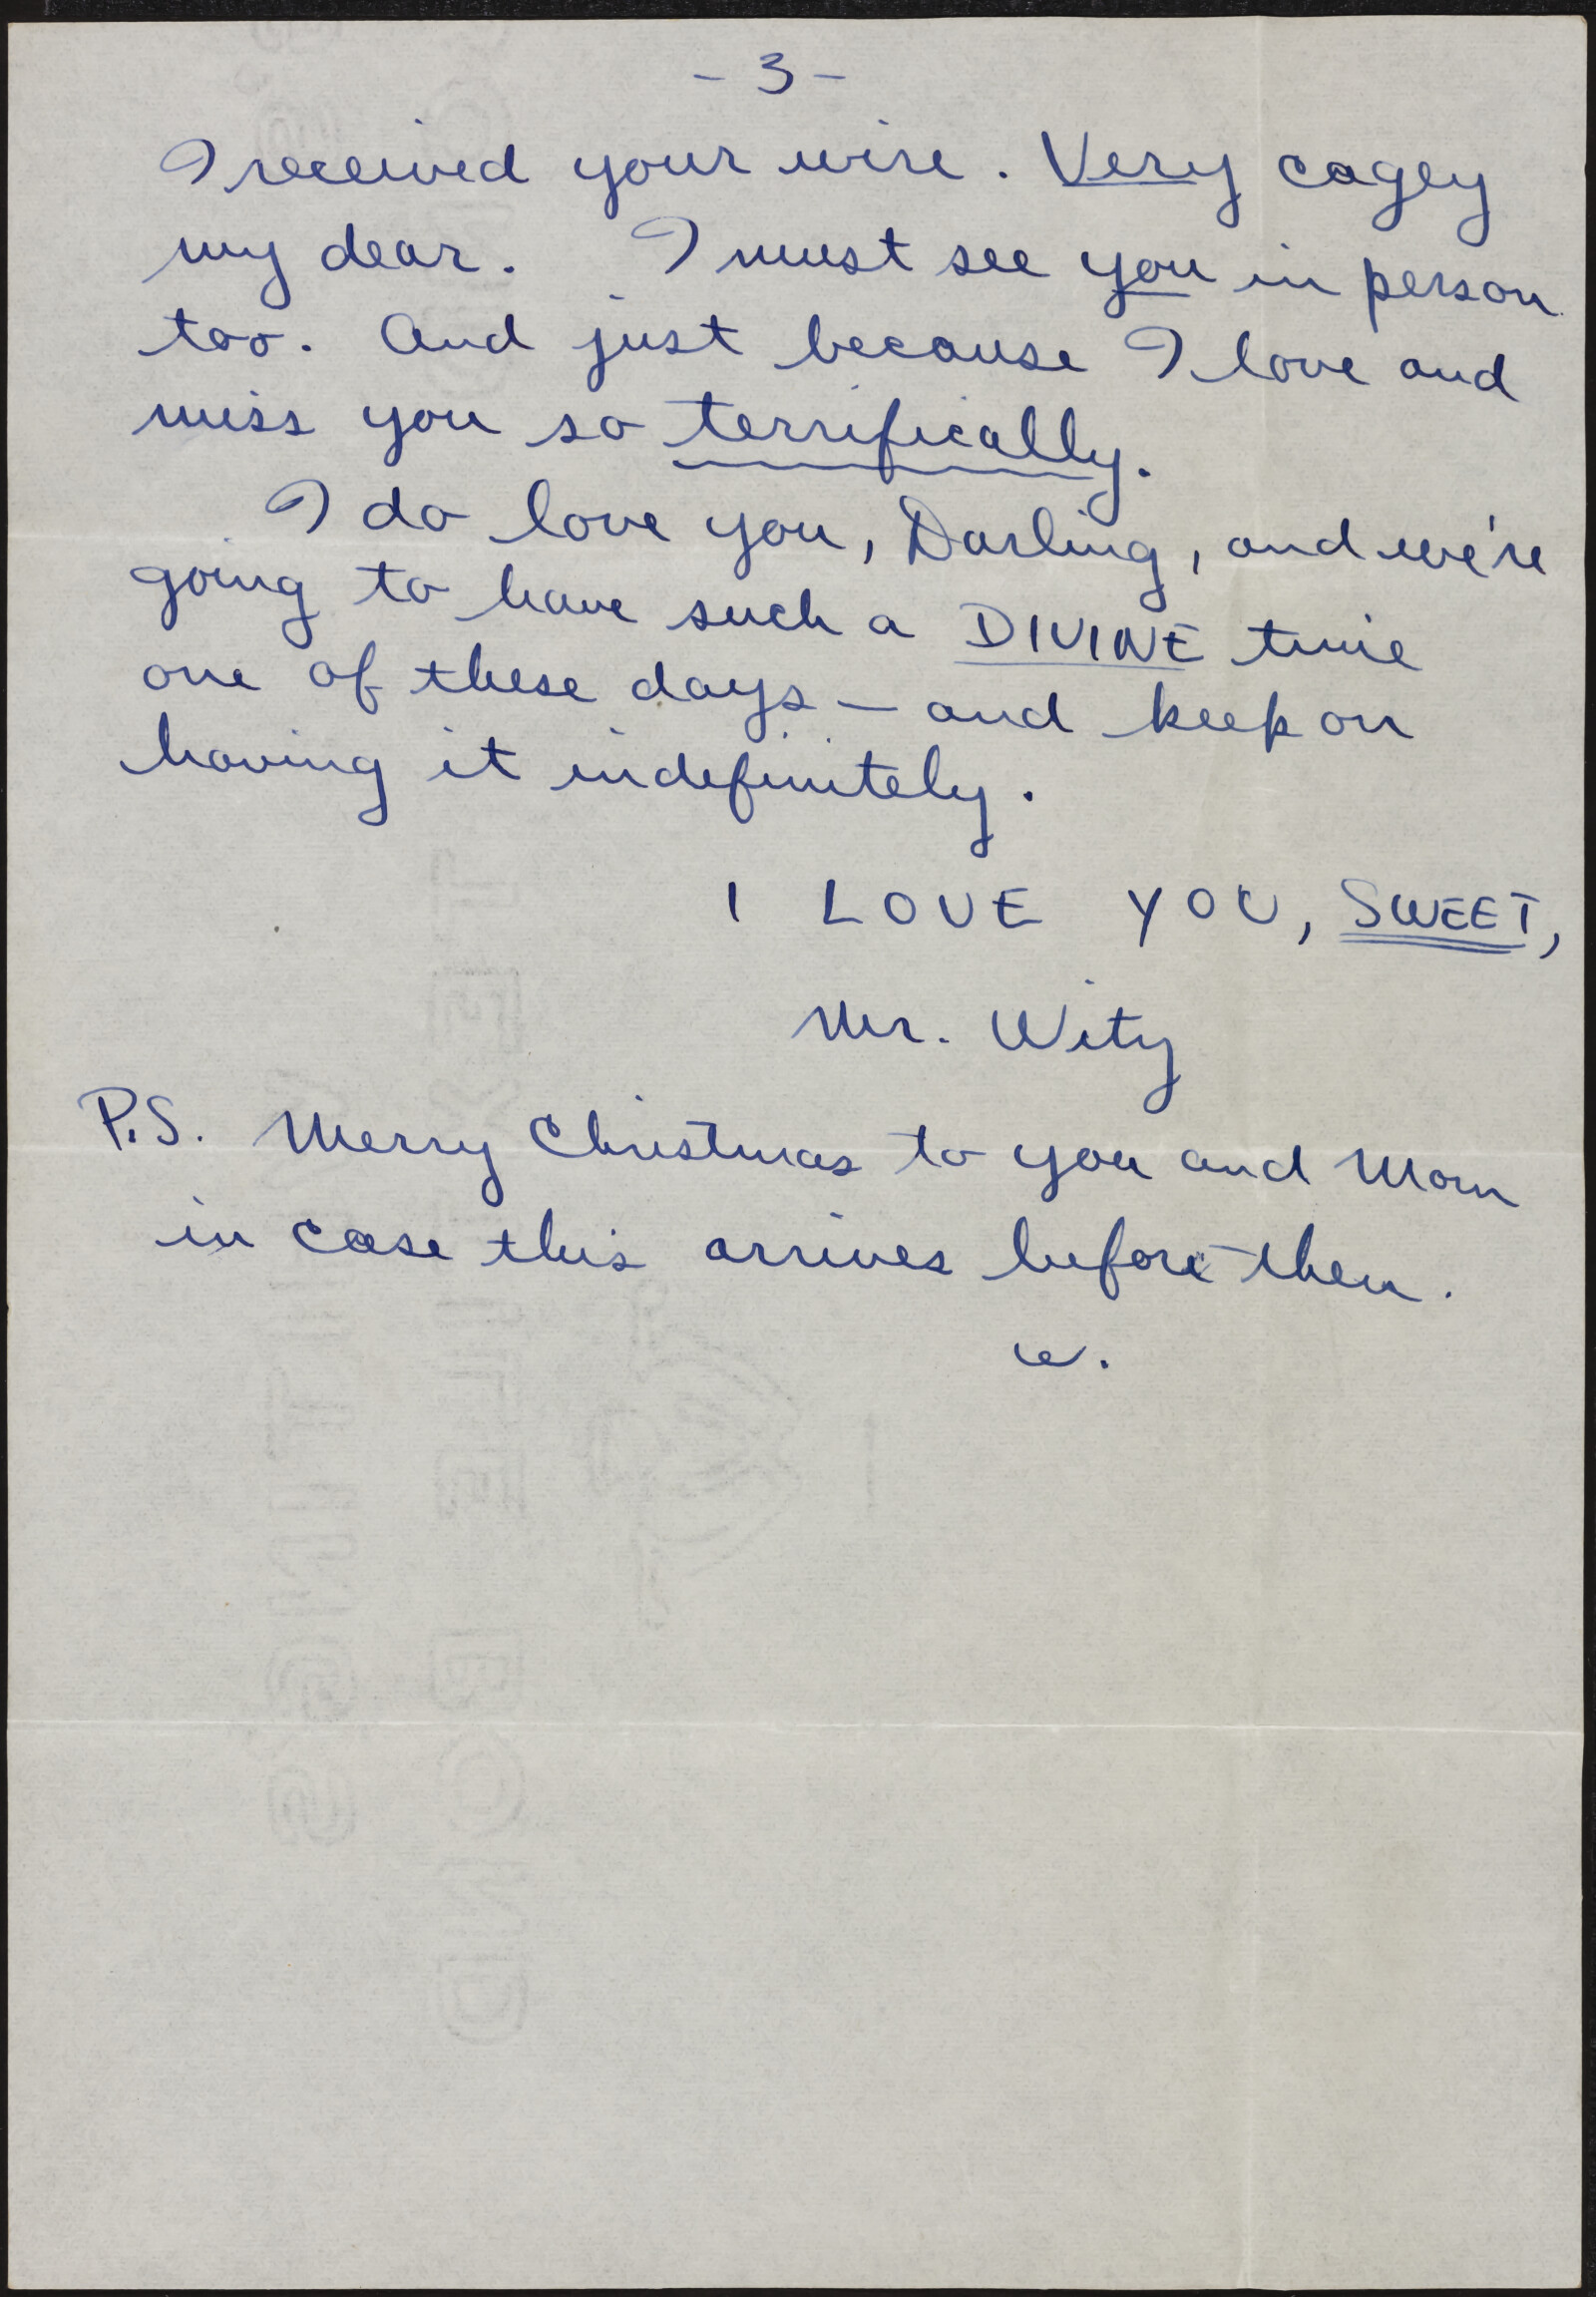 - 3 -
I received your wire. Very cagey
my dear. I must see you in person
too. And just because I love and
miss you so terrifically.
I do love you, Darling, and we're
going to have such a DIVINE time
one of these days — and keep on
having it indefinitely.
I LOVE YOU, SWEET,
Mr. Wity
P.S. Merry Christmas to you and Mom
in case this arrives before then.
w.